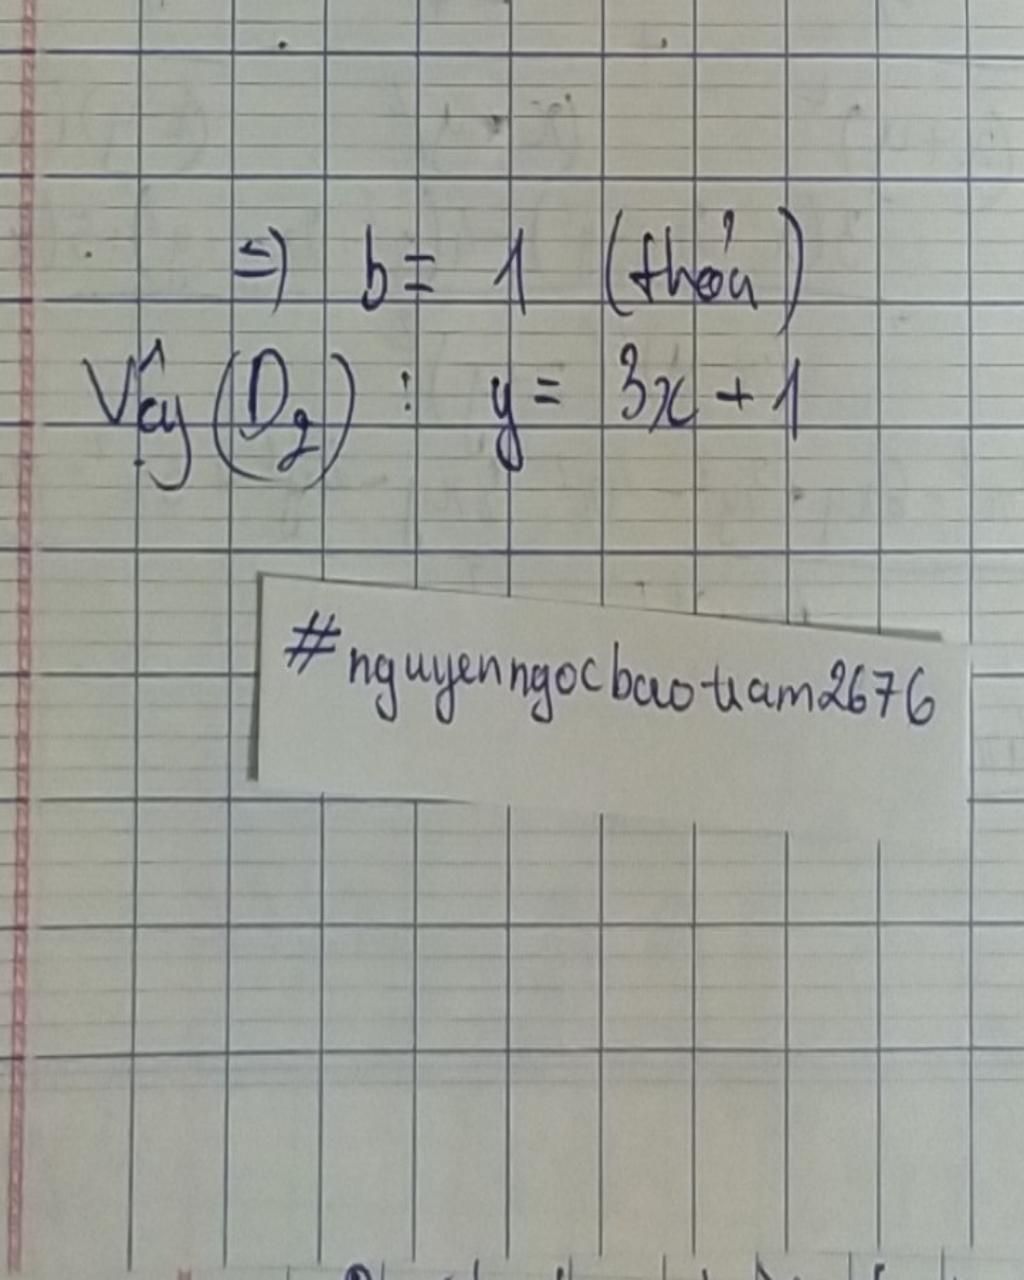 => b = 1 (thoả)
Vậy (D₂) : y = 3x + 1
#nguyenngocbaotram2676